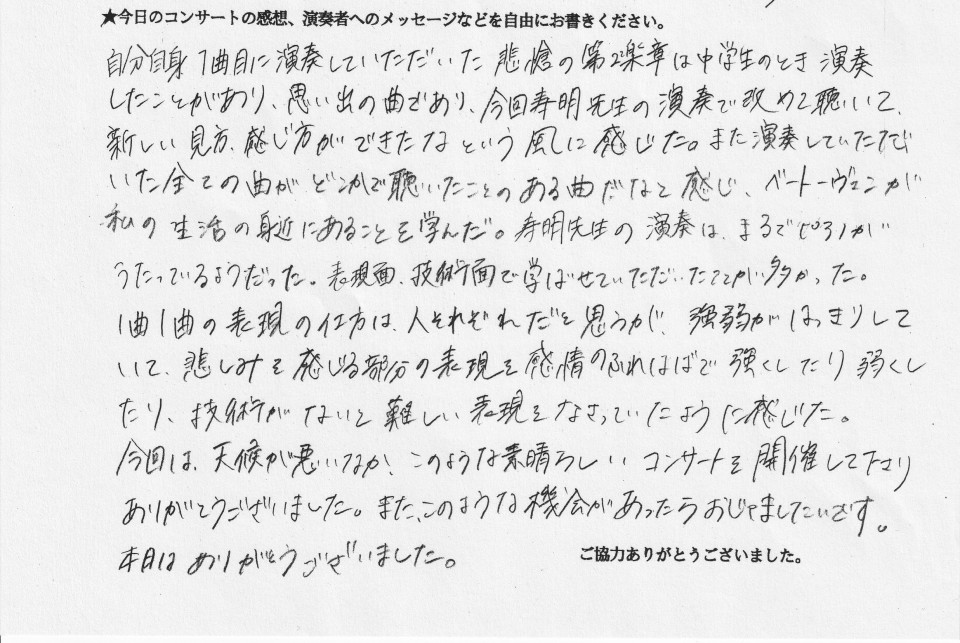 ★今日のコンサートの感想、演奏者へのメッセージなどを自由にお書きください。
自分自身1曲目に演奏していただいた悲愴の第2楽章は中学生のとき演奏
したことがあり、思い出の曲であり、今回寿明先生の演奏で改めて聴いて、
新しい見方、感じ方ができたなという風に感じた。また演奏していただで
いた全ての曲がどこかで聴いたことのある曲だなと感じ、ベートーヴェンが
私の生活の身近にあることを学んだ。寿明先生の演奏は、まるでピアノが
うたっているようだった。表現面、技術面で学ばせていただいたことが多かった。
1曲1曲の表現の仕方は、人それぞれだと思うが、強弱がはっきりして
いて、悲しみを感じる部分の表現を感情のふれはばで強くしたり弱くし
たり、技術がないと難しい表現をなさっていたように感じた。
今回は、天候が悪いなか、このような素晴らしいコンサートを開催して下さり
ありがとうございました。また、このような機会があったらおじゃましたいです。
本日はありがとうございました。
ご協力ありがとうございました。